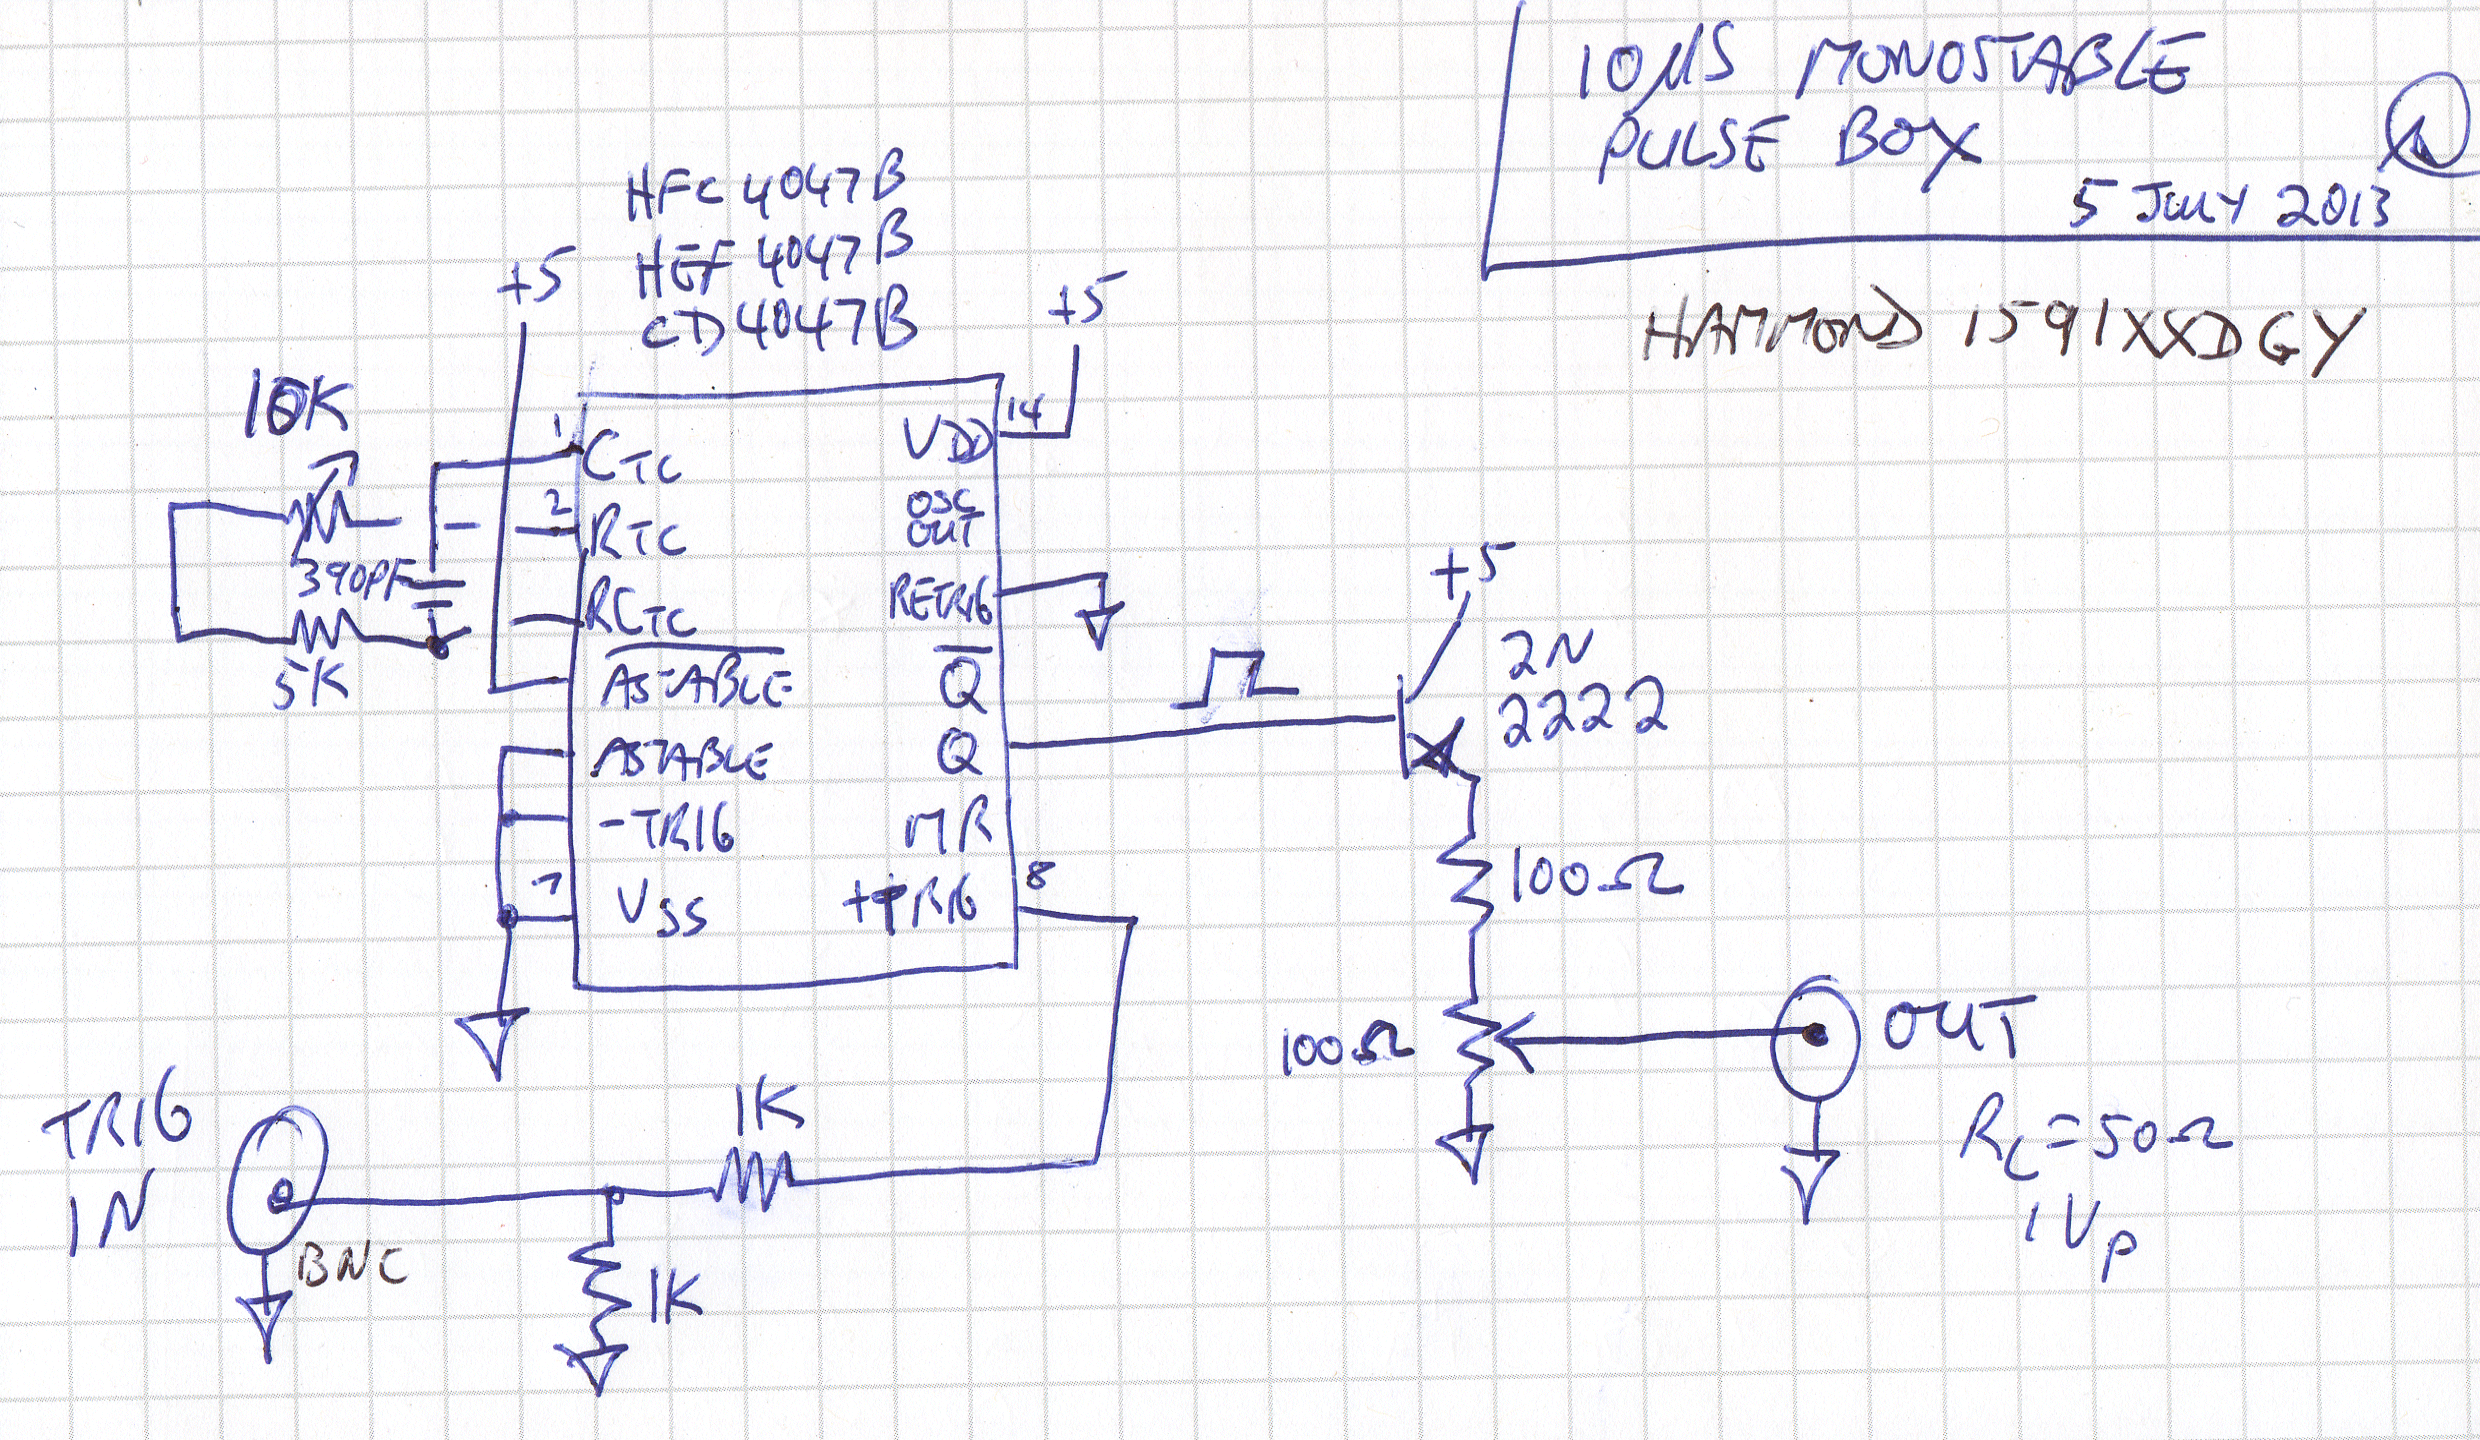 10µS MONOSTABLE
PULSE BOX
5 JULY 2013
HAMMOND 1591XXDGY
HFC 4047B
HEF 4047B
CD4047B
+5
+5
10K
390PF
5K
1
CTC
2
RTC
RCTC
ASTABLE
ASTABLE
-TRIG
7
VSS
14
VDD
OSC
OUT
RETRIG
Q
Q
MR
8
+TRIG
+5
2N
2222
100Ω
100Ω
OUT
RL=50Ω
1VP
TRIG
IN
BNC
1K
1K